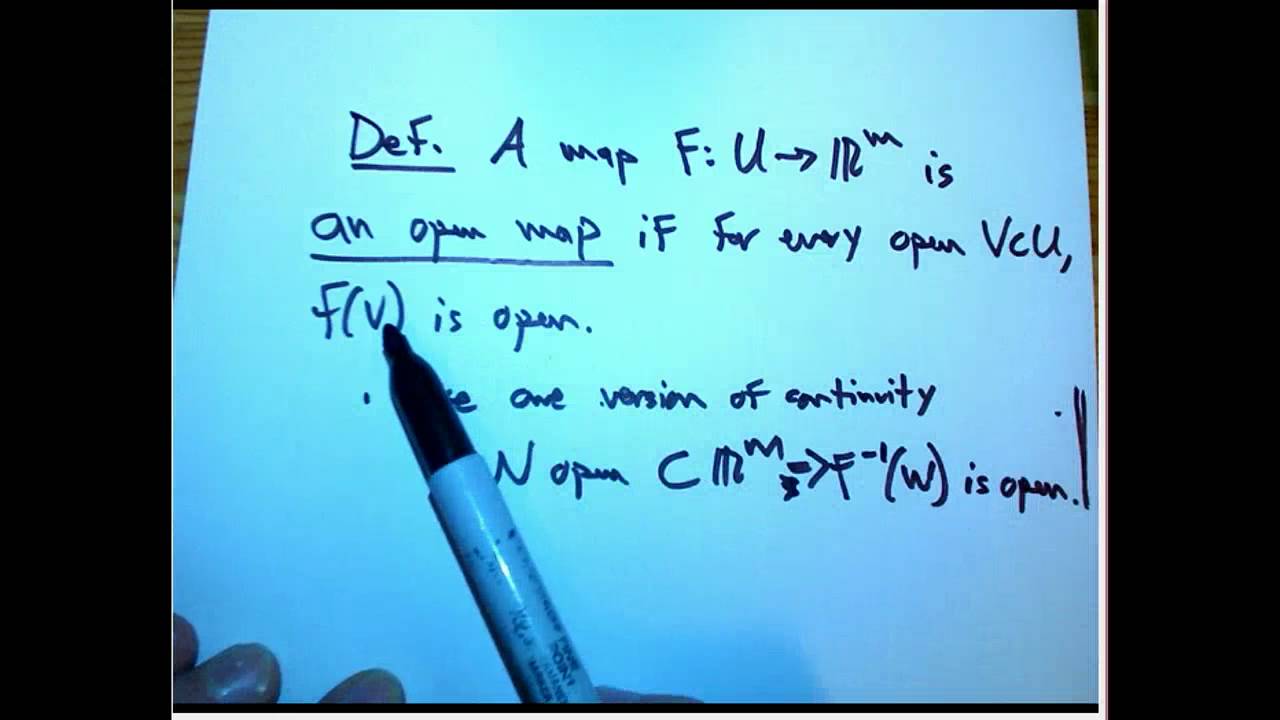 Def. A map F: U → ℝᵐ is
an open map if for every open V⊂U,
F(V) is open.
. one version of continuity
open ⊂ ℝᵐ ⇒ F⁻¹(W) is open.